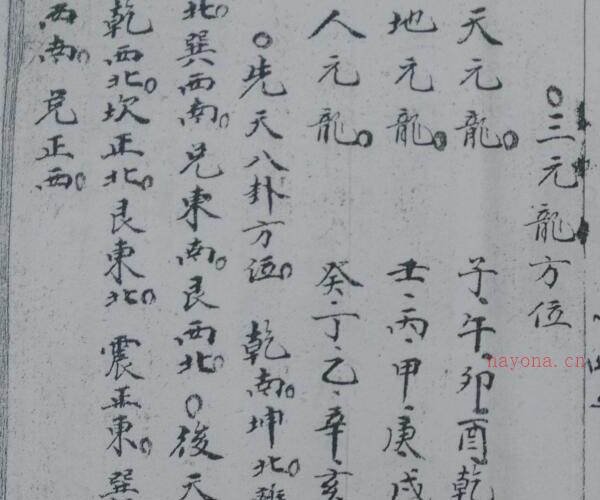 ○三元龍方位
天元龍。 子、午、卯、酉、乾
地元龍。 壬、丙、甲、庚、戌
人元龍。 癸、丁、乙、辛、亥
○先天八卦方位。乾南。坤北。離
北。巽西南。兌東南。艮西北。○後天
乾西北。坎正北。艮東北。震正東。巽
西南。兌正西。
nayona.cn